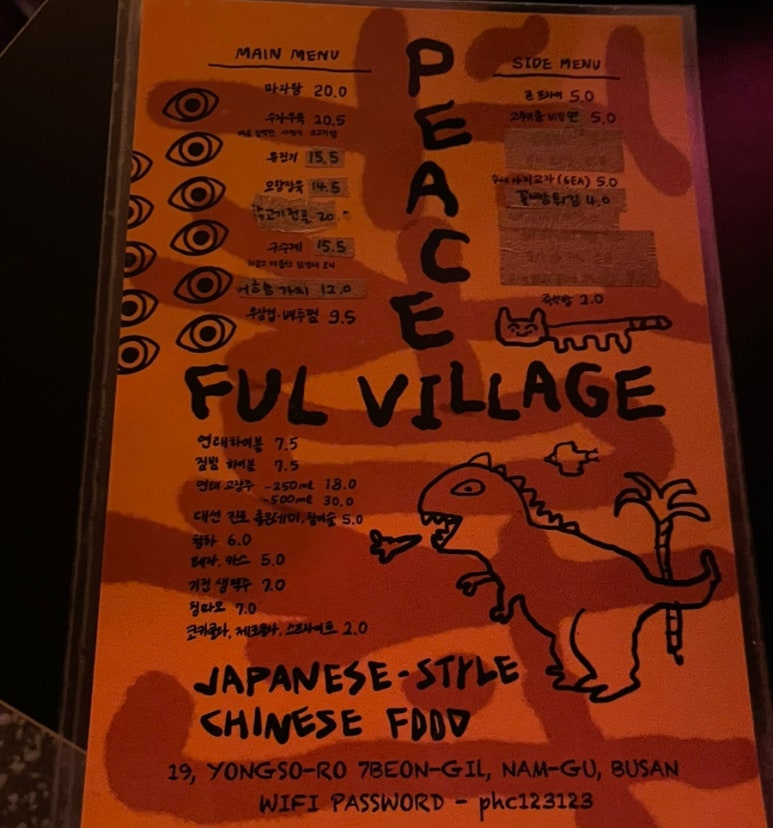 PEACE
FUL VILLAGE
MAIN MENU
마라탕 20.0
수자우육 20.5
유린기 15.5
오향장육 14.5
20.-
15.5
어향 가지 12.0
우삼겹·배추찜 9.5
SIDE MENU
5.0
고추기름 비빔면 5.0
교자 (6EA) 5.0
꽃빵튀김 4.0
공깃밥 2.0
연태하이볼 7.5
짐빔 하이볼 7.5
연태 고량주 -250ml 18.0
-500ml 30.0
대선 진로 좋은데이 5.0
청하 6.0
테라, 카스 5.0
기린 생맥주 7.0
칭따오 7.0
코카콜라, 제로콜라, 스프라이트 2.0
JAPANESE-STYLE
CHINESE FOOD
19, YONGSO-RO 7BEON-GIL, NAM-GU, BUSAN
WIFI PASSWORD - phc123123